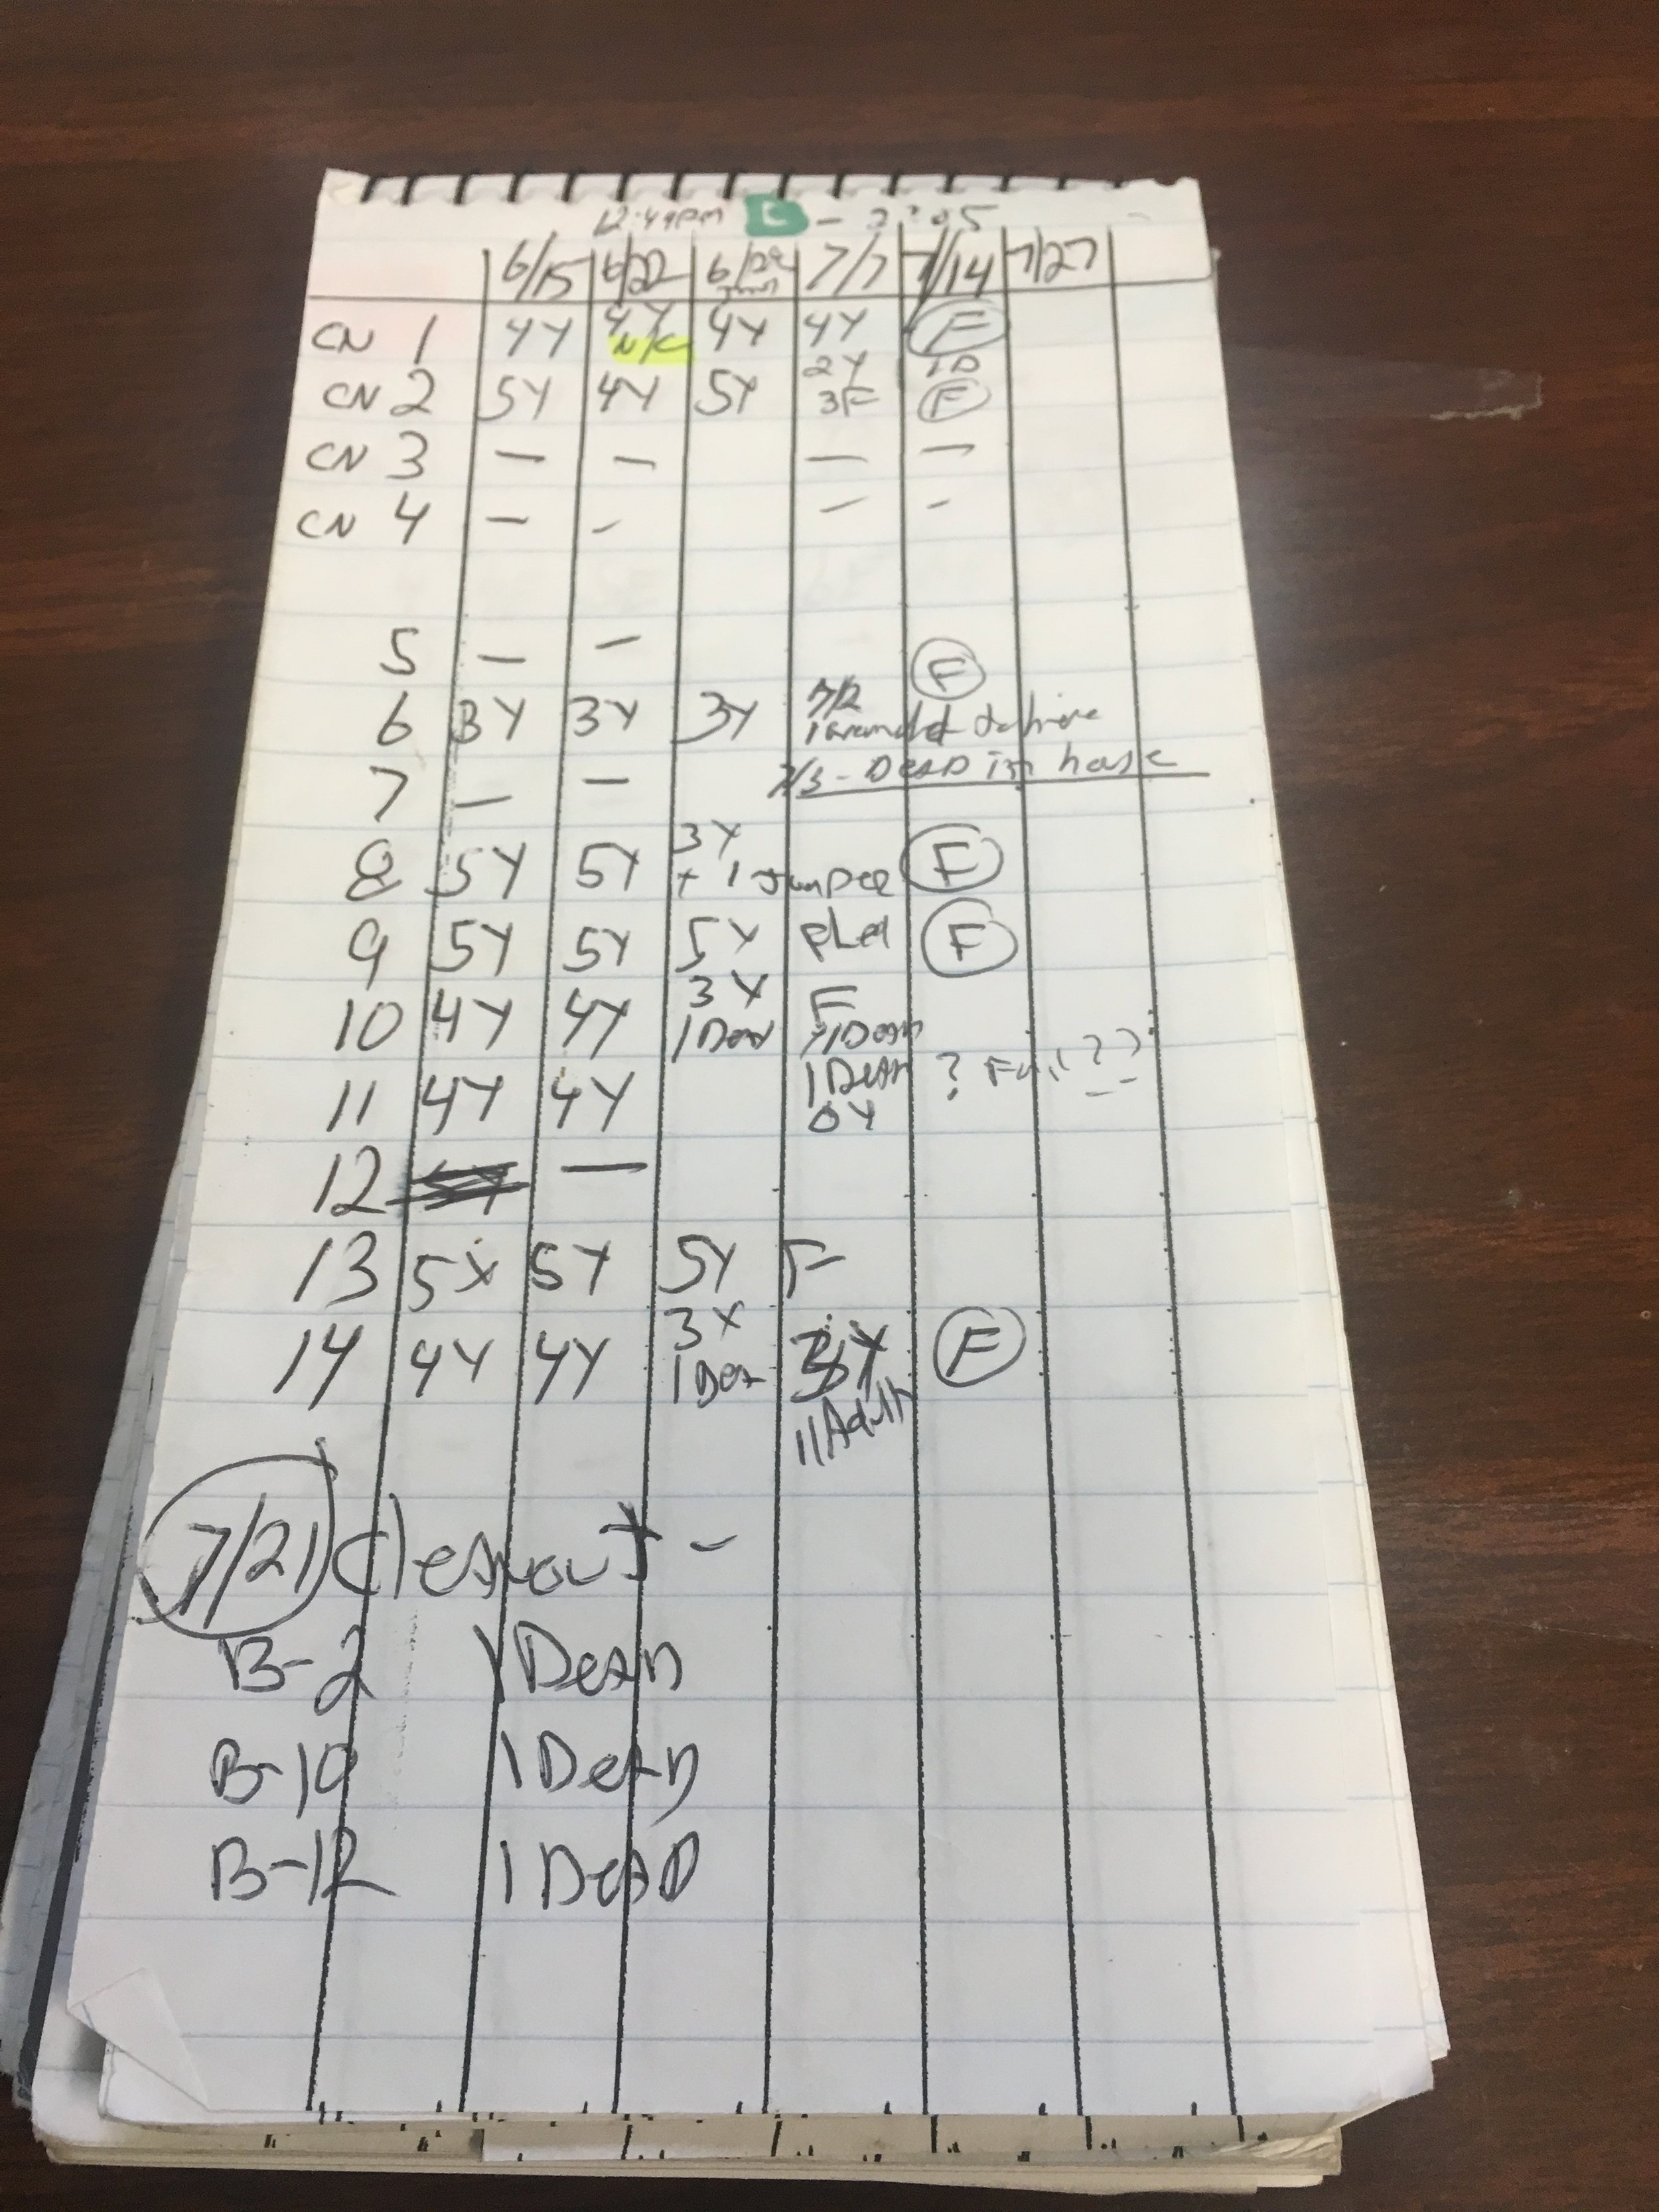 12:49pm -
6/15 6/22 6/29 7/7 7/14 7/27
CN 1 4Y 4Y N/C 4Y 4Y F
2Y 1D
CN 2 5Y 4Y 5Y 3F F
CN 3 — — — —
CN 4 — - — -
5 — — F
6 3Y 3Y 3Y 7/2
1
7 — — 7/3 - DEAD in
3Y
8 5Y 5Y + 1 Jumper F
9 5Y 5Y 5Y F
3Y F
10 4Y 4Y 1 Dead 1 Dead
1 Dead ? ??
11 4Y 4Y 0Y
12 —
13 5Y 5Y 5Y F
3Y
14 4Y 4Y 1 F
Adult
7/21 cleanout -
B-2 1 Dead
B-10 1 Dead
B-12 1 DeaD